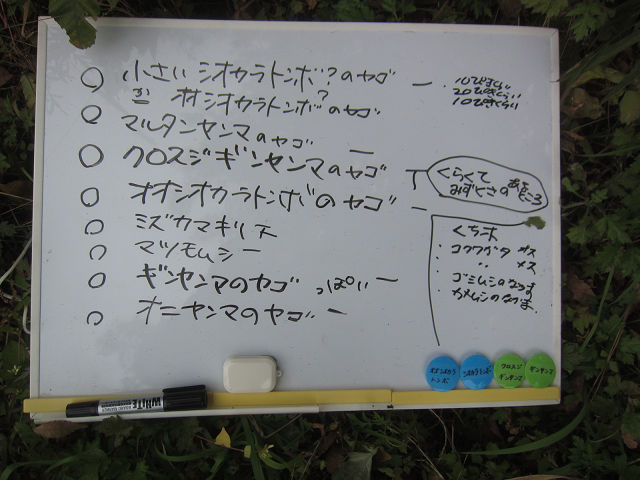 小さい シオカラトンボ?のヤゴ ー
オオシオカラトンボ?のヤゴ
10ぴきくらい
20ぴきくらい
10ぴきくらい
マルタンヤンマのヤゴ
クロスジギンヤンマのヤゴ ー
くらくて
みずくさの あるところ
オオシオカラトンボのヤゴ ー
ミズカマキリ
マツモムシー
ギンヤンマのヤゴ っぽい ー
オニヤンマのヤゴ ー
くちホ
・コクワガタ メス
・ 〃 メス
・ゴミムシのなかま
・カメムシのなかま
オオシオカラ
トンボ
シオカラトンボ
クロスジ
ギンヤンマ
ギンヤンマ
WHITE